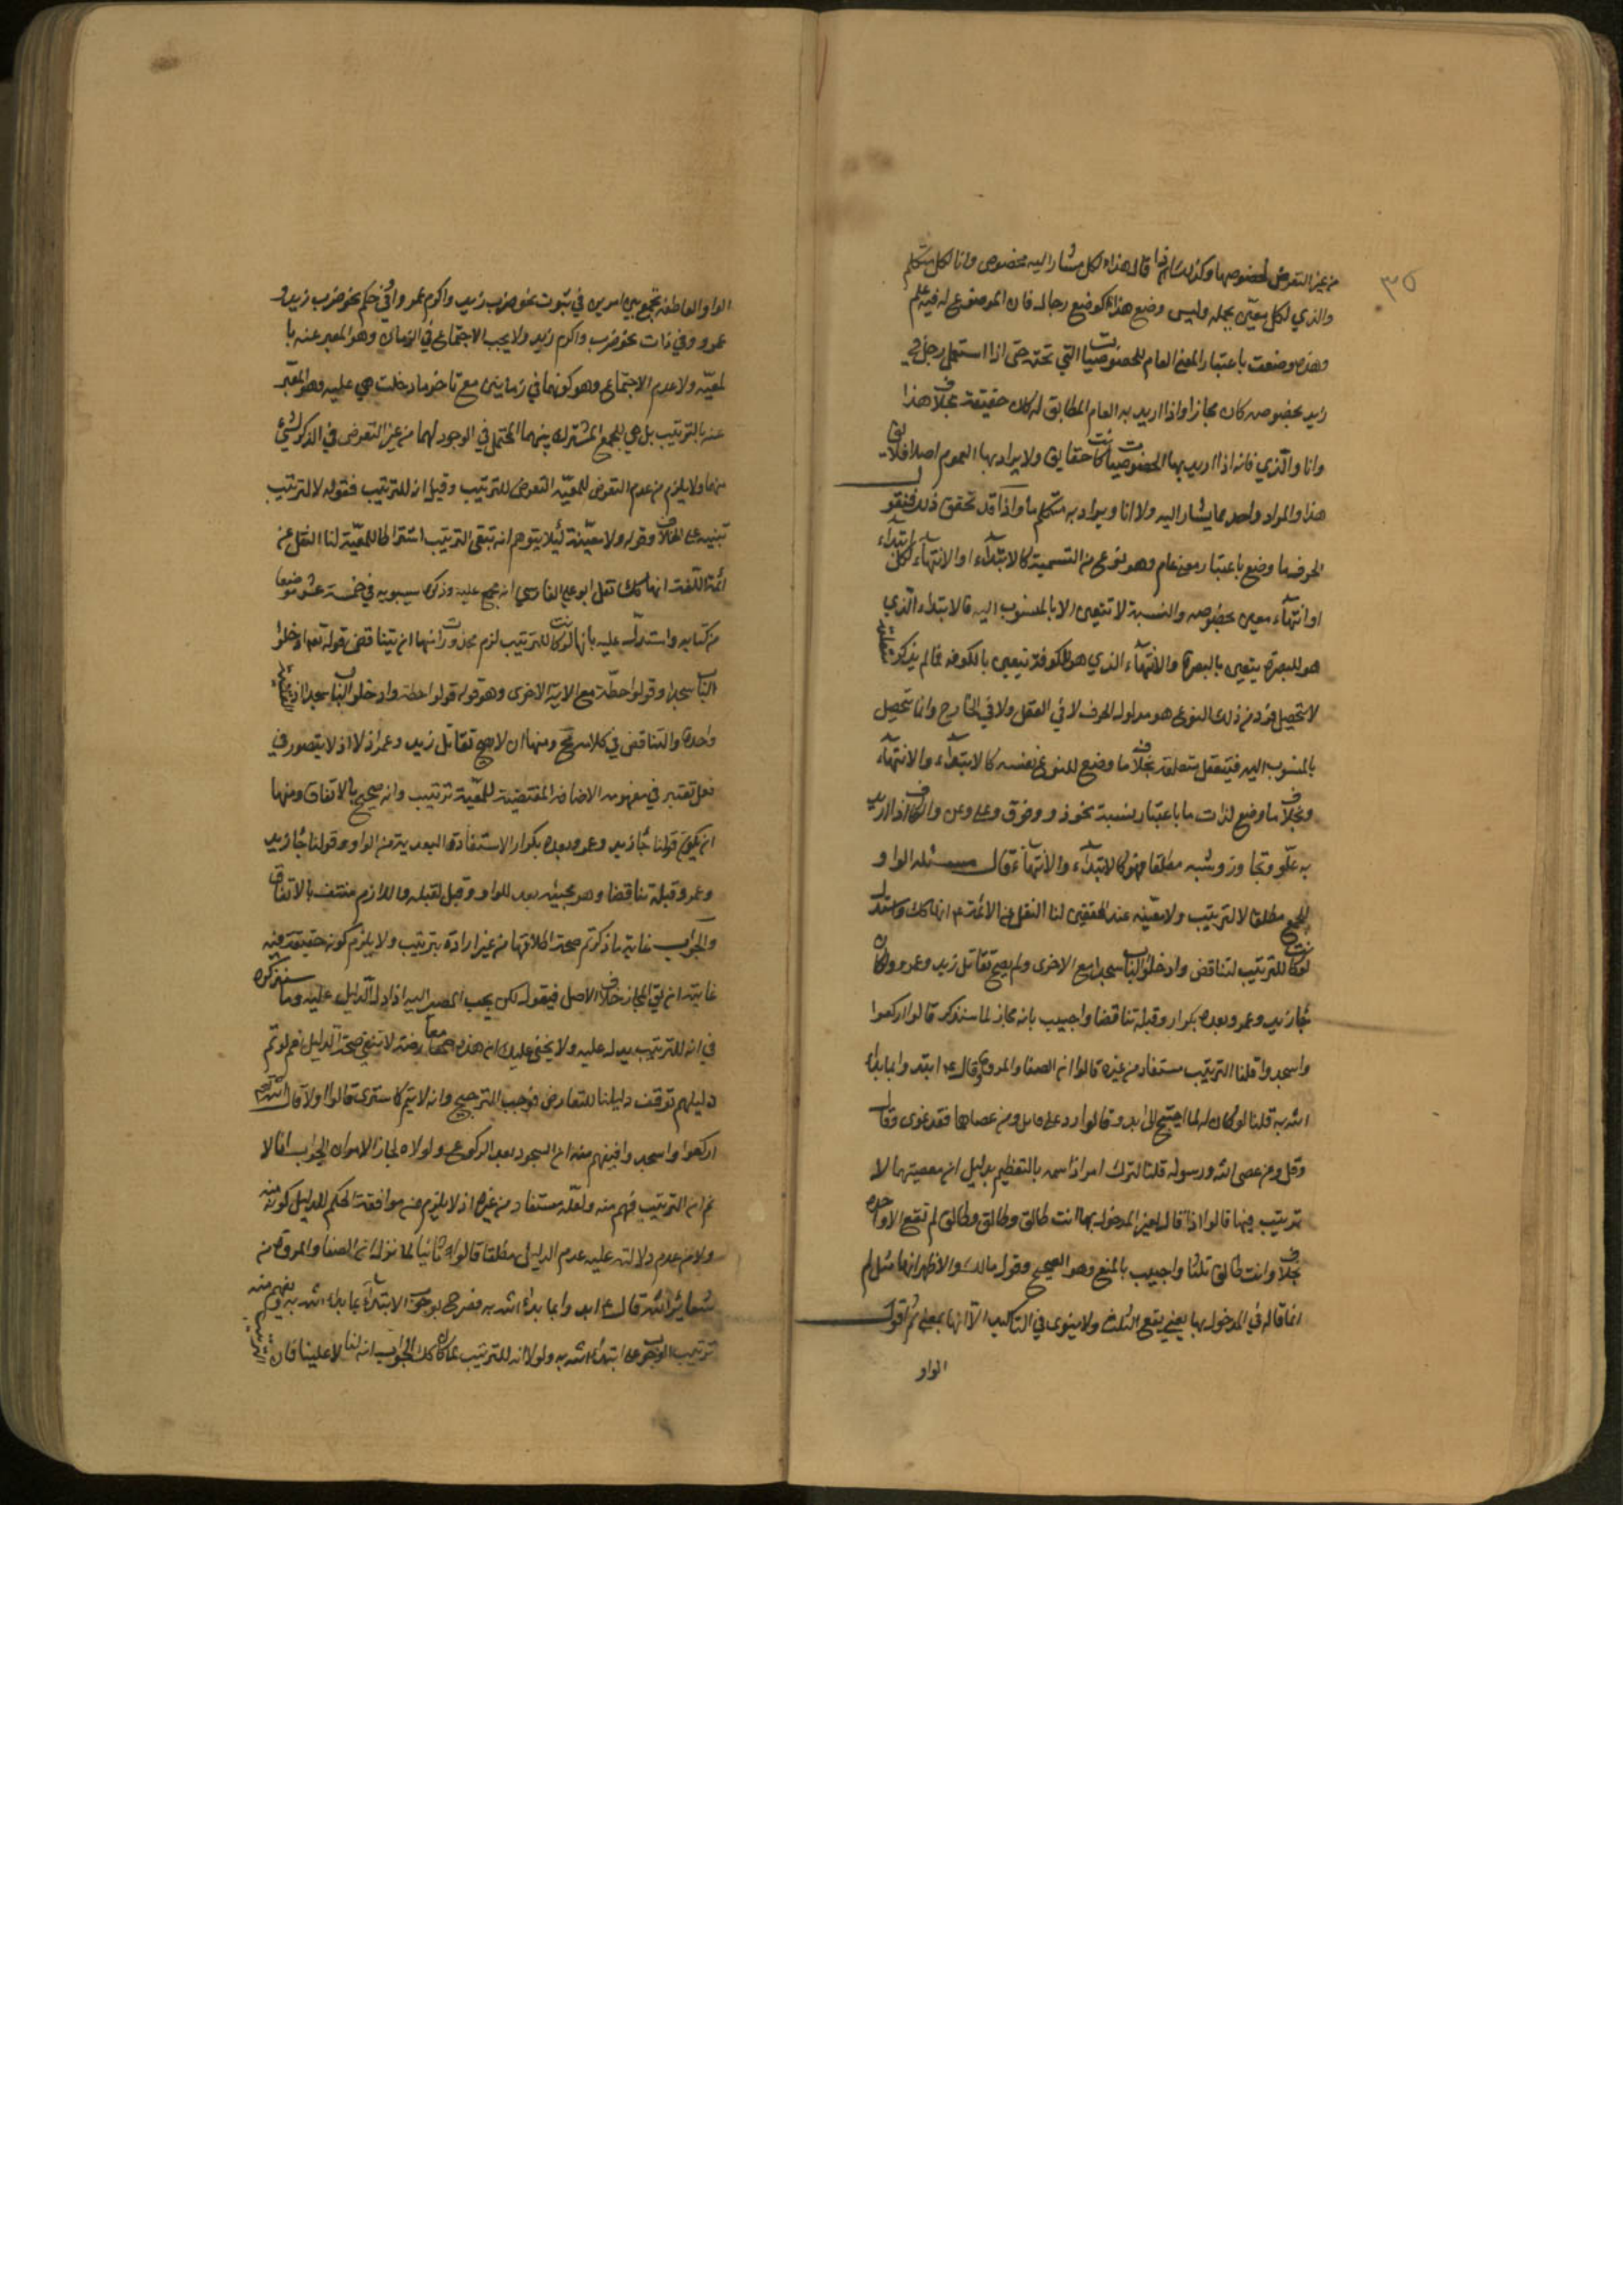 ٣٥
من غير التعرض لخصوصها وكذلك اذا قال هذا لكل مشار اليه مخصوص وانا لكل متكلم
والذي لكل معين بجمله وليس وضع هذا كوضع رجل فان الموضوع له فيه علم
وهذه وضعت باعتبار المعنى العام للخصوصيات التي تحته حتى اذا استعمل رجل في
زيد بخصوصه كان مجازا واذا اريد به العام المطابق له كان حقيقة بخلاف هذا
وانا والذي فانه اذا اريد بها الخصوصيات كانت حقايق ولا يراد بها العموم اصلا فلا يق
هذا والمراد واحد مما يشار اليه ولا انا ويراد به متكلم ما واذا قد تحقق ذلك فنقول
الحرف ما وضع باعتبار معنى عام وهو نوع من النسبة كالابتداء او الانتهاء لكل ابتداء
او انتهاء معين بخصوصه والنسبة لا تتعين الا بالمنسوب اليه فالابتداء الذي
هو للبصرة يتعين بالبصرة والانتهاء الذي هو للكوفة يتعين بالكوفة فما لم يذكر متعلقه
لا يتحصل فرد من ذلك النوع هو مدلول الحرف لا في العقل ولا في الخارج وانما يتحصل
بالمنسوب اليه فيتعقل بتعلقه بخلاف ما وضع للنوع نفسه كالابتداء والانتهاء
وبخلاف ما وضع لذات ما باعتبار نسبة نحو ذو وفوق وعلى وعن والكاف اذا اريد
به علو وتجاوز وشبه مطلقا فهو كالابتداء والانتهاء قال مسئله الواو
للجمع مطلقا لا لترتيب ولا معية عند المحققين لنا النقل عن الائمة انها كك واستدل
لو كانت للترتيب لتناقض وادخلوا الباب سجدا مع الاخرى ولم يصح تقاتل زيد وعمرو ولكان
جاء زيد وعمرو بعده تكرار وقبله تناقضا واجيب بانه مجاز لما سنذكر قالوا اركعوا
واسجدوا قلنا الترتيب مستفاد من غيره قالوا ان الصفا والمروة وقال ع ابدوا بما بدأ
الله به قلنا لو كان له لما احتيج الى ابدو قالوا رد على قايل ومن عصاهما فقد غوى وقال
وقل ومن عصى الله ورسوله قلنا لترك افراد اسمه بالتعظيم بدليل ان معصيتهما لا
ترتيب فيها قالوا اذا قال لغير المدخول بها انت طالق وطالق وطالق لم تقع الا واحدة
بخلاف وانت طالق ثلثا واجيب بالمنع وهو الصحيح وقول مالك والاظهر انها مثل ثم
انما قاله في المدخول بها يعني يقع الثلث ولا ينوى في التاكيد الا انها بمعنى ثم اقول
الواو
الواو العاطفة تجمع بين امرين في ثبوت نحو ضرب زيد واكرم عمرو او في حكم نحو ضرب زيد و
عمرو وفي ذات نحو ضرب واكرم زيد ولا يجب الاجتماع في الزمان وهو المعبر عنه با
لمعية ولا عدم الاجتماع وهو كونهما في زمانين مع تاخر ما دخلت هي عليه وهو المعبر
عنه بالترتيب بل هي للجمع المشترك بينهما المحتمل في الوجود لهما من غير التعرض في الذكر لشيء
منهما ولا يلزم من عدم التعرض للمعية التعرض للترتيب وقيل انه للترتيب فقوله لا لترتيب
تنبيه على الخلاف وقوله ولا معية لئلا يتوهم انه بنفي الترتيب اشترطا للمعية لنا النقل عن
ائمة اللغة انها كك نقل ابو علي الفارسي انه مجمع عليه وذكره سيبويه في خمسة عشر موضعا
من كتابه واستدل عليه بانها لو كانت للترتيب لزم محذورات انها ان يتناقض بقوله تعالى وادخلوا
الباب سجدا وقولوا حطة مع الاية الاخرى وهو قوله قولوا حطة وادخلوا الباب سجدا اذ القصة
واحدة والتناقض في كلامه تع ومنها ان لا يصح تقاتل زيد وعمرو اذ لا يتصور في
فعل تعتبر في مفهومه الاضافة المقتضية للمعية ترتيب وانه صحيح بالاتفاق ومنها
ان يكون قولنا جاء زيد وعمرو بعده تكرار الاستفادة البعدية من الواو وقولنا جاء زيد
وعمرو قبله تناقضا وهو مجيئه بعد للواو وقبل لقبله واللازم منتف بالاتفاق
والجواب غاية ما ذكرتم صحة اطلاقها من غير ارادة ترتيب ولا يلزم كونه حقيقة فيه
غايته ان يق المجاز خلاف الاصل فيقول لكن يجب المصير اليه اذا دل الدليل عليه وما سنذكره
في انه للترتيب يدل عليه ولا يخفى عليك ان هذه معارضة لا تنفي صحة الدليل نعم لو تم
دليلهم توقف دليلنا للتعارض فوجب الترجيح وانه لا يتم كما سترى قالوا اولا قال الله تعالى
اركعوا واسجدوا فيفهم منه ان السجود بعد الركوع ولولاه لجاز الامران الجواب انا لا
نم ان الترتيب فهم منه ولعله مستفاد من غيره اذ لا يلزم من موافقة الحكم للدليل كونه منه
ولا من عدم دلالته عليه عدم الدليل مطلقا قالوا ثانيا لما نزل ان الصفا والمروة من
شعاير الله قال ع ابدوا بما بدأ الله به فصرح بوجوب الابتداء بما بدأ الله به ويفهم منه
ترتيب الوجوب على ابتداء الله به ولولا انه للترتيب لما كان كك الجواب انه لنا لا علينا فان